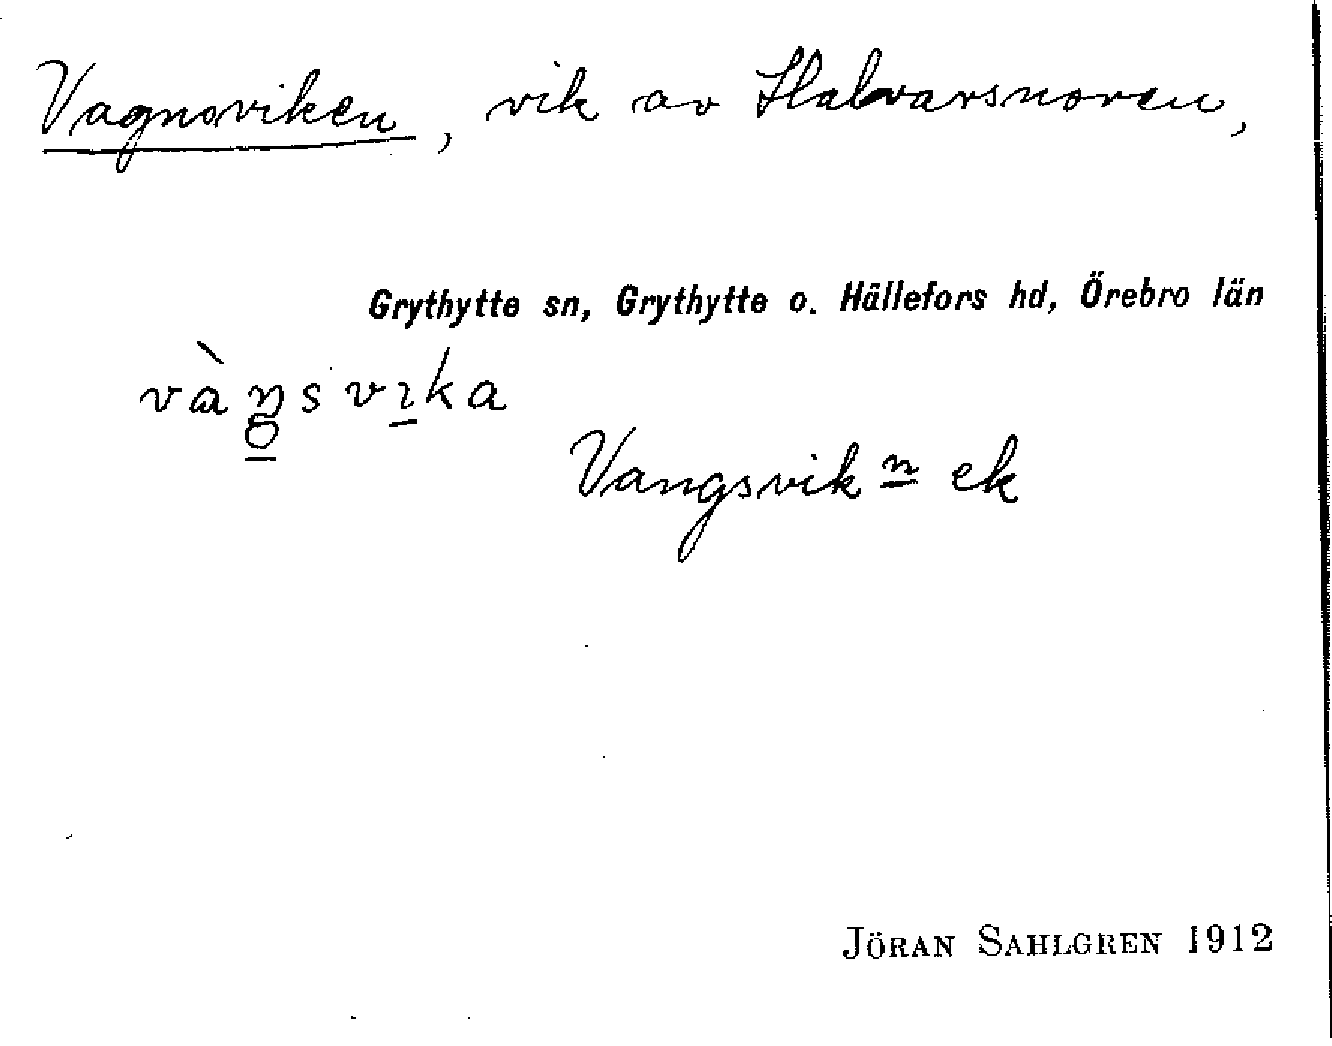 Vagnsviken, vik av Halvarsnoren,
Grythytte sn, Grythytte o. Hällefors hd, Örebro län
vàŋsvıka
Vangsvikn ek
JÖRAN SAHLGREN 1912